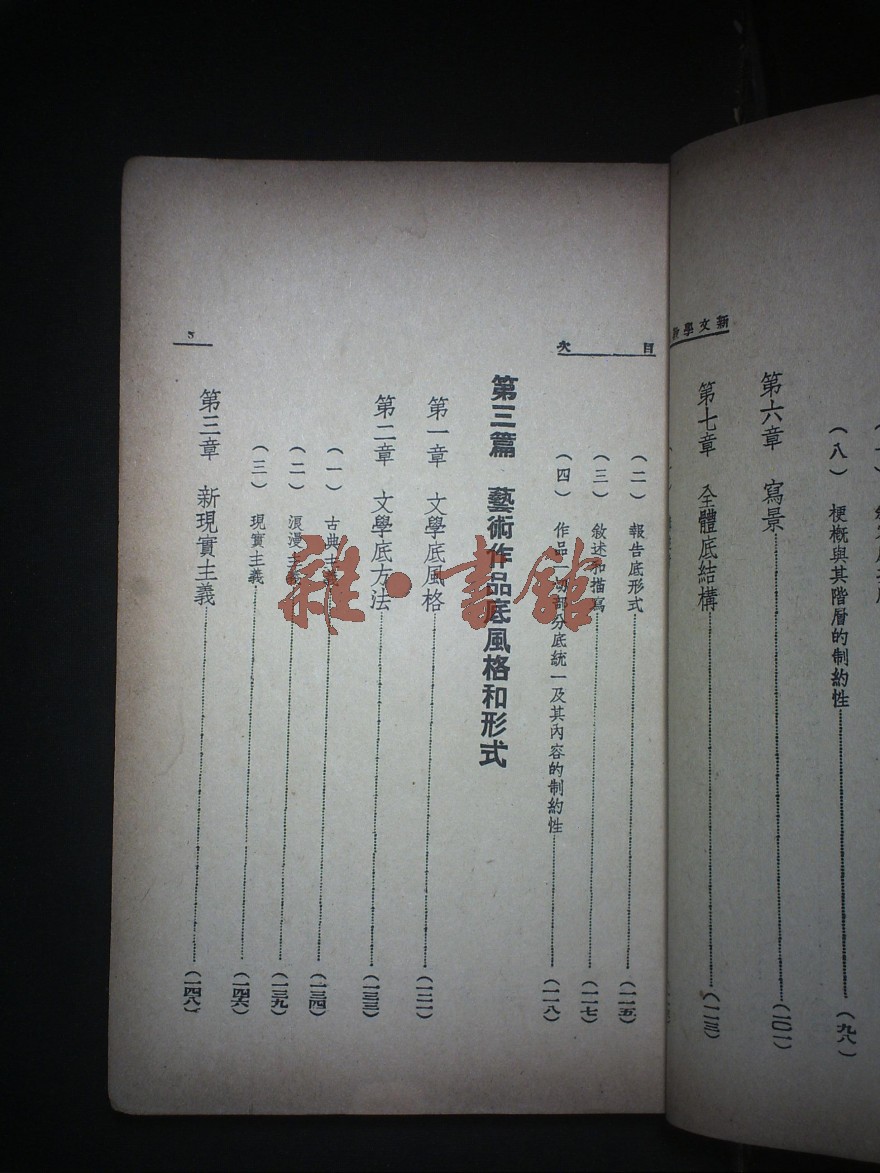 新文學
（八） 梗概與其階層的制約性……（九八）
第六章 寫景……（一〇一）
第七章 全體底結構……（一一三）
目次
（二） 報告底形式……（一一五）
（三） 敘述和描寫……（一一七）
（四） 作品一切部分底統一及其內容的制約性……（一一八）
第三篇 藝術作品底風格和形式
第一章 文學底風格……（一二一）
第二章 文學底方法……（一三三）
（一） 古典主義……（一三四）
（二） 浪漫主義……（一三九）
（三） 現實主義……（一四六）
第三章 新現實主義……（一四八）
5
雜·書館